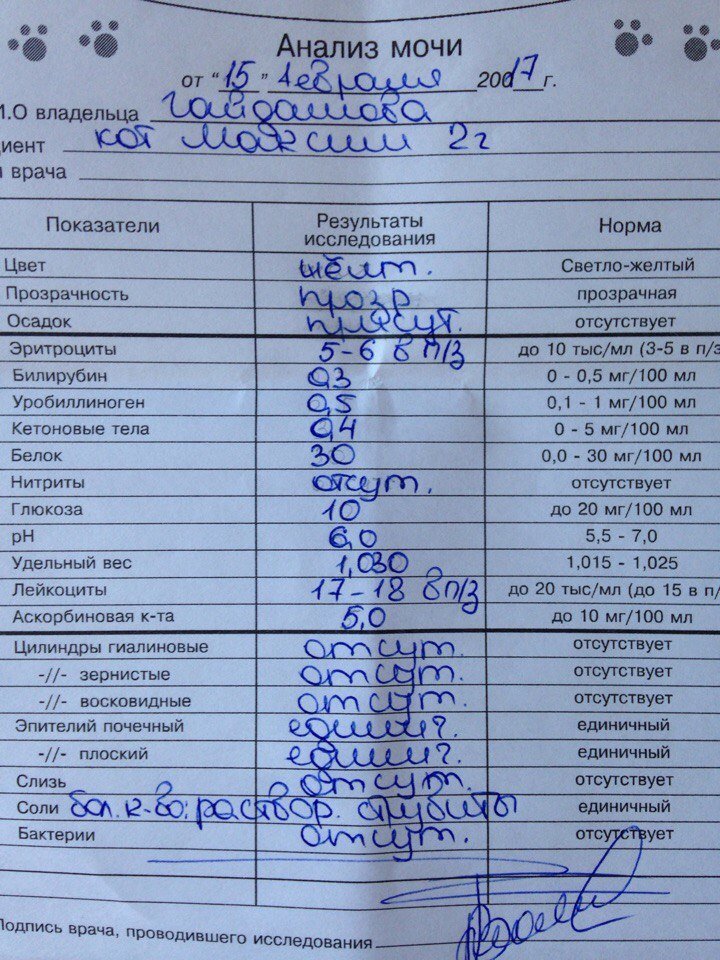 Анализ мочи
от "15" февраля 20017 г.
И.О владельца Гайдашова
циент кот Максим 2г
я врача
Показатели Результаты исследования Норма
Цвет жёлт. Светло-желтый
Прозрачность прозр прозрачная
Осадок присут. отсутствует
Эритроциты 5-6 в п/з до 10 тыс/мл (3-5 в п/з
Билирубин 0,3 0 - 0,5 мг/100 мл
Уробиллиноген 0,5 0,1 - 1 мг/100 мл
Кетоновые тела 0,4 0 - 5 мг/100 мл
Белок 30 0,0 - 30 мг/100 мл
Нитриты отсут. отсутствует
Глюкоза 10 до 20 мг/100 мл
pH 6,0 5,5 - 7,0
Удельный вес 1,030 1,015 - 1,025
Лейкоциты 17-18 в п/з до 20 тыс/мл (до 15 в п/
Аскорбиновая к-та 5,0 до 10 мг/100 мл
Цилиндры гиалиновые отсут. отсутствует
-//- зернистые отсут. отсутствует
-//- восковидные отсут. отсутствует
Эпителий почечный единич. единичный
-//- плоский единич. единичный
Слизь отсут. отсутствует
Соли бол. к-во: раствор. струбиты единичный
Бактерии отсут. отсутствует
Подпись врача, проводившего исследования